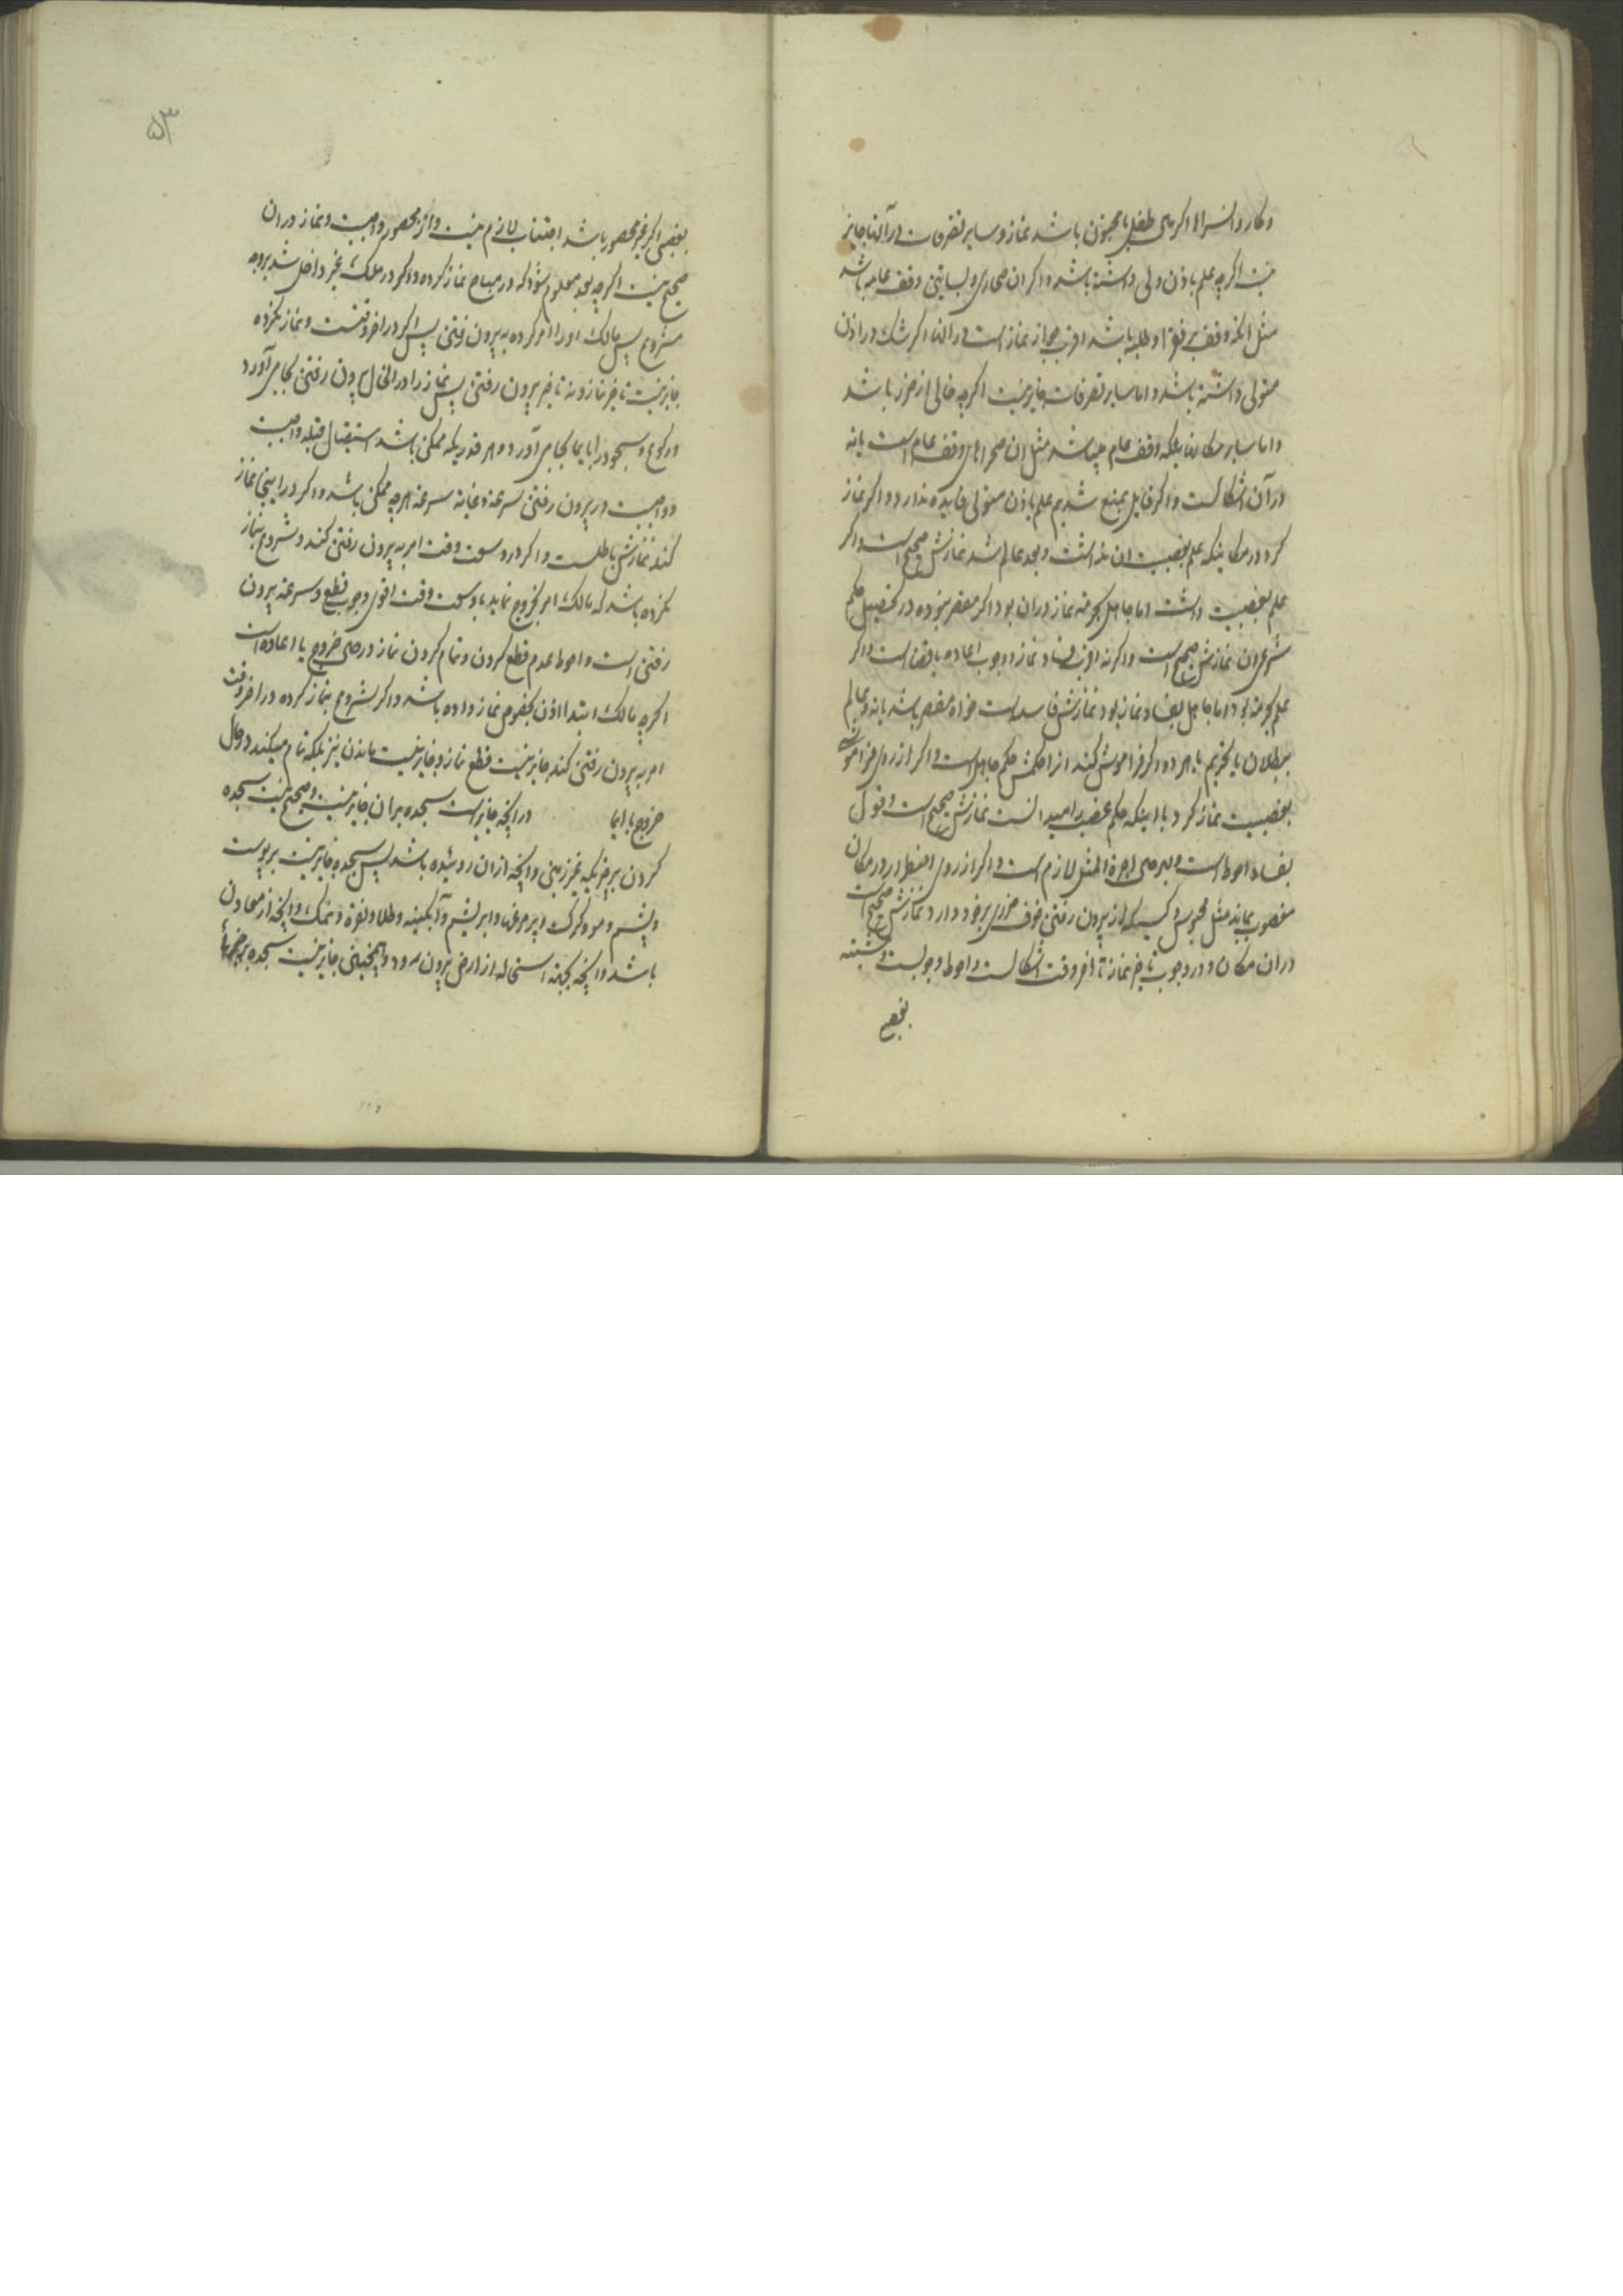 و کاروانسرا اگر ملک طفل یا مجنون باشد نماز و سایر تصرفات در آنها جایز
نیست اگرچه علم باذن ولی داشته باشد و اگر ان صحاری و بساتین وقف عامه باشد
مثل انکه وقف بر فقرا و طلبه باشد اقرب جواز نماز است در آنها اگر شک در اذن
متولی داشته باشد و اما سایر تصرفات جایز نیست اگرچه خالی از ضرر باشد
و اما سایر مکانهائیکه وقف عام میباشد مثل ان صحراهای وقف عام است یا نه
در آن اشکالست و اگر قایل بمنع شدیم علم باذن متولی فایده ندارد و اگر نماز
کرد در مکانیکه علم بغصبیت ان نداشت و بعد عالم شد نمازش صحیح است و اگر
علم بغصبیت داشت اما جاهل بحرمة نماز دران بود اگر مقصر نبوده در تحصیل حکم
شرعی ان نمازش صحیح است و اگرنه اقرب فساد نماز و وجوب اعاده یا قضا است و اگر
علم بحرمة بود اما جاهل بفساد نماز بود نمازش فاسد است خواه مقصر باشد یا نه و عالم
ببطلان یا تحریم یا هر دو اگر فراموش کند انرا حکمش حکم جاهل است و اگر از روی فراموشی
بغصبیت نماز کرد با اینکه حکم غصب را میدانست نمازش صحیح است و قول
بفساد احوط است و بهر حال اجرة المثل لازم است و اگر از روی اضطرار در مکان
مغصوب بماند مثل محبوس و کسیکه از بیرون رفتن خوف ضرری بر خود دارد نمازش صحیح است
دران مکان و در وجوب تاخیر نماز تا اخر وقت اشکالست و احوط وجوبست و مشتبه
بغصبی
۵۳
بغصبی اگر غیر محصور باشد اجتناب لازم نیست و از محصور واجبست و نماز دران
صحیح نیست اگرچه بعد معلوم شود که در مباح نماز کرده و اگر در ملک غیر داخل شد بر وجه
مشروع پس مالک او را امر کرده به بیرون رفتن پس اگر در اخر وقتست و نماز نکرده
جایز نیست تاخیر نماز و نه تاخیر بیرون رفتن پس نماز را در انحال بیرون رفتن بجا می آورد
و رکوع و سجود را بایما بجا می آورد و هر قدریکه ممکن باشد استقبال قبله واجبست
و واجبست در بیرون رفتن سرعة و غایة سرعة هرچه ممکن باشد و اگر در اینجا نماز
کند نمازش باطلست و اگر در وسعت وقت امر به بیرون رفتن کند و شروع بنماز
نکرده باشد که مالک امر بخروج نماید با وسعت وقت اقوی وجوب قطع و سرعة بیرون
رفتن است و احوط عدم قطع کردن و تمام کردن نماز در حین خروج با اعاده است
اگرچه مالک ابتدا اذن بخصوص نماز داده باشد و اگر شروع بنماز کرده در اخر وقت
امر به بیرون رفتن کند جایز نیست قطع نماز و جایز نیست ماندن نیز بلکه تمام میکند در حال
خروج با ایما در انچه جایز است سجده بران جایز نیست و صحیح نیست سجده
کردن بر چیزیکه غیر زمین و انچه از ان روئیده باشد پس سجده جایز نیست بر پوست
و پشم و مو و کرک و پر مرغها و ابریشم و آبگینه و طلا و نقره و نمک و انچه از معادن
باشد و انچه بجهة استحاله از ارض بیرون رود و همچنین جایز نیست سجده بر خوردنیها